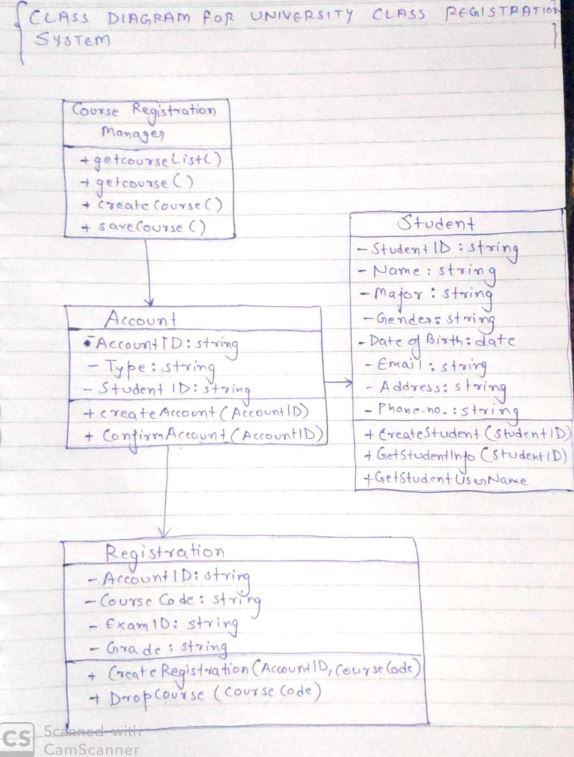 CLASS DIAGRAM FOR UNIVERSITY CLASS REGISTRATION
SYSTEM
Course Registration
Manager
+ getcourseList()
+ getcourse()
+ createCourse()
+ saveCourse()
Account
• AccountID: string
- Type: string
- Student ID: string
+ createAccount(AccountID)
+ ConfirmAccount(AccountID)
Student
- Student ID: string
- Name: string
- Major: string
- Gender: string
- Date of Birth: date
- Email: string
- Address: string
- Phone-no.: string
+ CreateStudent(StudentID)
+ GetStudentInfo(StudentID)
+ GetStudentUserName
Registration
- AccountID: string
- Course Code: string
- ExamID: string
- Grade: string
+ CreateRegistration(AccountID, CourseCode)
+ DropCourse(Course Code)
CS
Scanned with
CamScanner